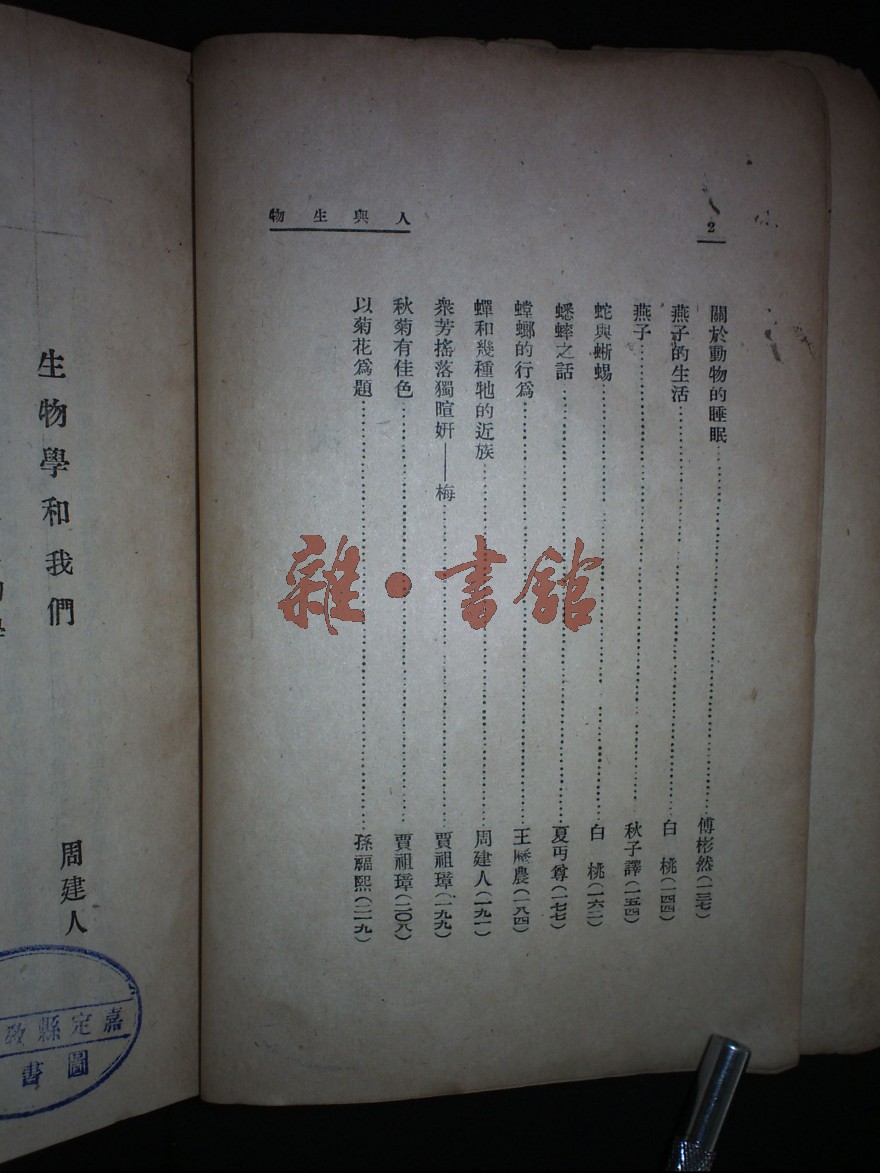 2
人與生物
關於動物的睡眠 傅彬然(一三七)
燕子的生活 白 桃(一四四)
燕子 秋子譯(一五四)
蛇與蜥蜴 白 桃(一六二)
蟋蟀之話 夏丏尊(一七七)
螳螂的行爲 王歷農(一八四)
蟬和幾種牠的近族 周建人(一九一)
衆芳搖落獨暄妍——梅 賈祖璋(一九九)
秋菊有佳色 賈祖璋(二〇八)
以菊花爲題 孫福熙(二一九)
生物學和我們
周建人
嘉定縣敎
圖書
雜·書館